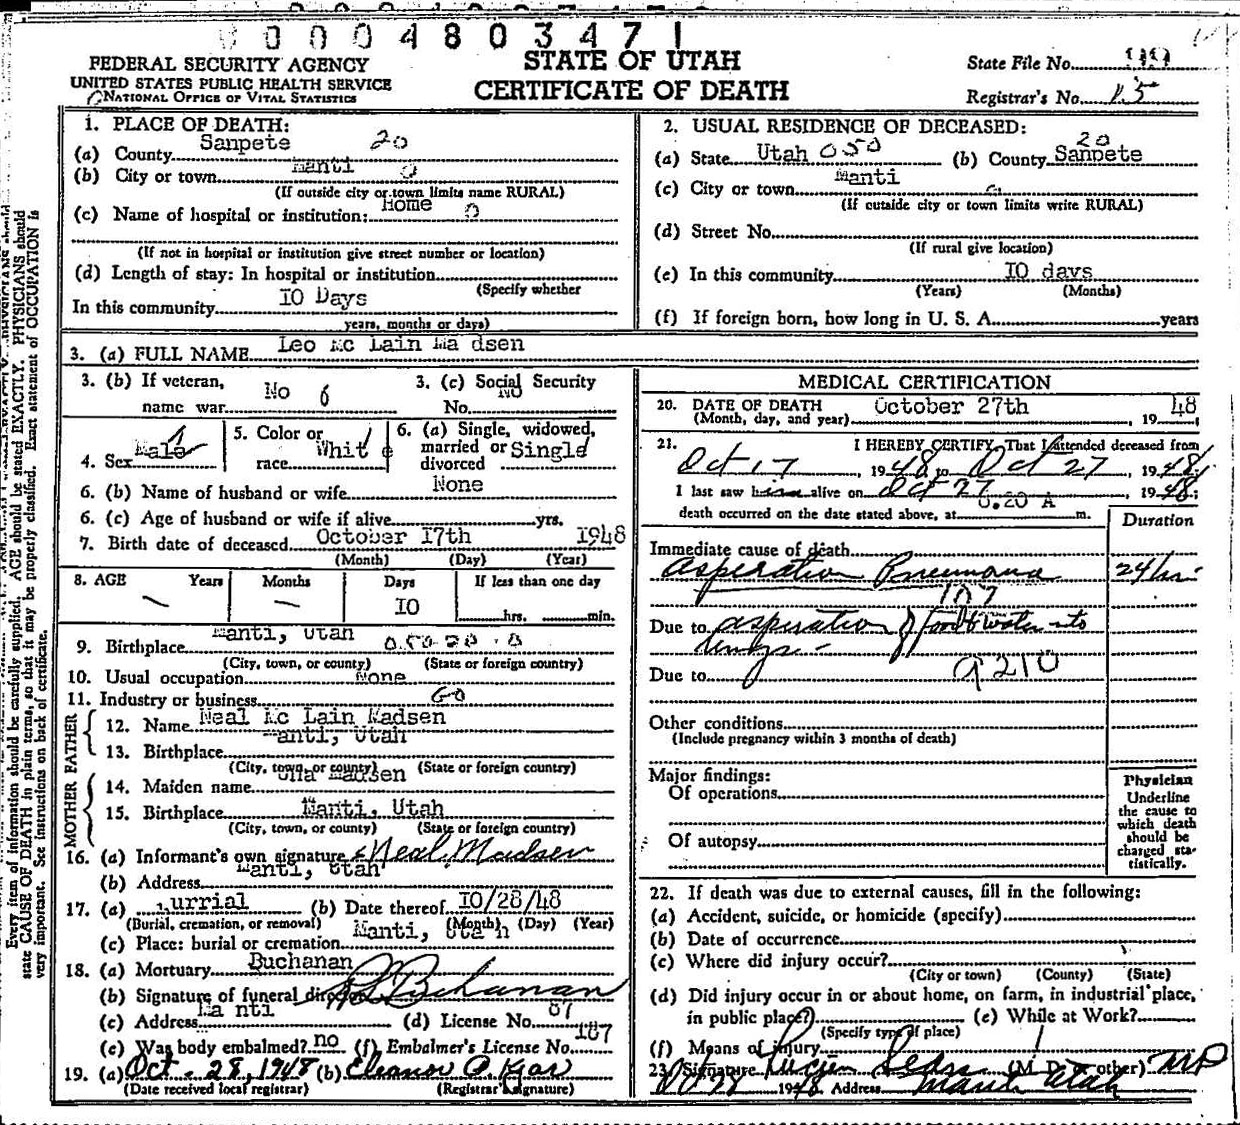 0004803471
FEDERAL SECURITY AGENCY
UNITED STATES PUBLIC HEALTH SERVICE
NATIONAL OFFICE OF VITAL STATISTICS
STATE OF UTAH
CERTIFICATE OF DEATH
State File No.
Registrar's No. 15
1. PLACE OF DEATH:
(a) County Sanpete 20
(b) City or town Manti 0
(If outside city or town limits name RURAL)
(c) Name of hospital or institution: Home 0
(If not in hospital or institution give street number or location)
(d) Length of stay: In hospital or institution
(Specify whether
In this community IO Days
years, months or days)
2. USUAL RESIDENCE OF DECEASED:
(a) State Utah 050 (b) County Sanpete 20
(c) City or town Manti
(If outside city or town limits write RURAL)
(d) Street No.
(If rural give location)
(e) In this community IO days
(Years) (Months)
(f) If foreign born, how long in U. S. A. years
3. (a) FULL NAME Leo Mc Lain Ma dsen
3. (b) If veteran, name war No 6
3. (c) Social Security No. No
4. Sex Male
5. Color or race Whit e
6. (a) Single, widowed, married or divorced Single
6. (b) Name of husband or wife None
6. (c) Age of husband or wife if alive yrs.
7. Birth date of deceased October I7th I948
(Month) (Day) (Year)
8. AGE Years Months Days If less than one day
— — IO hrs. min.
9. Birthplace Manti, Utah
(City, town, or county) (State or foreign country)
10. Usual occupation None
11. Industry or business 60
FATHER
12. Name Neal Mc Lain Madsen
13. Birthplace Manti, Utah
(City, town, or county) (State or foreign country)
MOTHER
14. Maiden name Madsen
15. Birthplace Manti, Utah
(City, town, or county) (State or foreign country)
16. (a) Informant's own signature Neal Madsen
(b) Address Manti, Utah
17. (a) Burrial (b) Date thereof IO/28/48
(Burial, cremation, or removal) (Month) (Day) (Year)
(c) Place: burial or cremation Manti, Utah
18. (a) Mortuary Buchanan
(b) Signature of funeral director Buchanan
(c) Address Ma nti (d) License No. 67
(e) Was body embalmed? no (f) Embalmer's License No. I67
19. (a) Oct - 28, 1948 (b) Eleanor P. Kjar
(Date received local registrar) (Registrar's signature)
MEDICAL CERTIFICATION
20. DATE OF DEATH October 27th 19 48
(Month, day, and year)
21. I HEREBY CERTIFY, That I attended deceased from
Oct 17, 1948, to Oct 27, 1948;
I last saw him alive on Oct 27, 1948;
death occurred on the date stated above, at 20 A m.
Duration
Immediate cause of death
Asperation Pneumona 24 hr
107
Due to aspiration of food & water into
lungs -
Due to 9210
Other conditions
(Include pregnancy within 3 months of death)
Major findings:
Of operations
Of autopsy
Physician
Underline
the cause to
which death
should be
charged sta-
tistically.
22. If death was due to external causes, fill in the following:
(a) Accident, suicide, or homicide (specify)
(b) Date of occurrence
(c) Where did injury occur?
(City or town) (County) (State)
(d) Did injury occur in or about home, on farm, in industrial place,
in public place? (e) While at Work?
(Specify type of place)
(f) Means of injury
23. Signature Lucien Sears (M. D. or other) MD
1948 Address Manti Utah
Every item of information should be carefully supplied. AGE should be stated EXACTLY. PHYSICIANS should
state CAUSE OF DEATH in plain terms, so that it may be properly classified. Exact statement of OCCUPATION is
very important. See instructions on back of certificate.